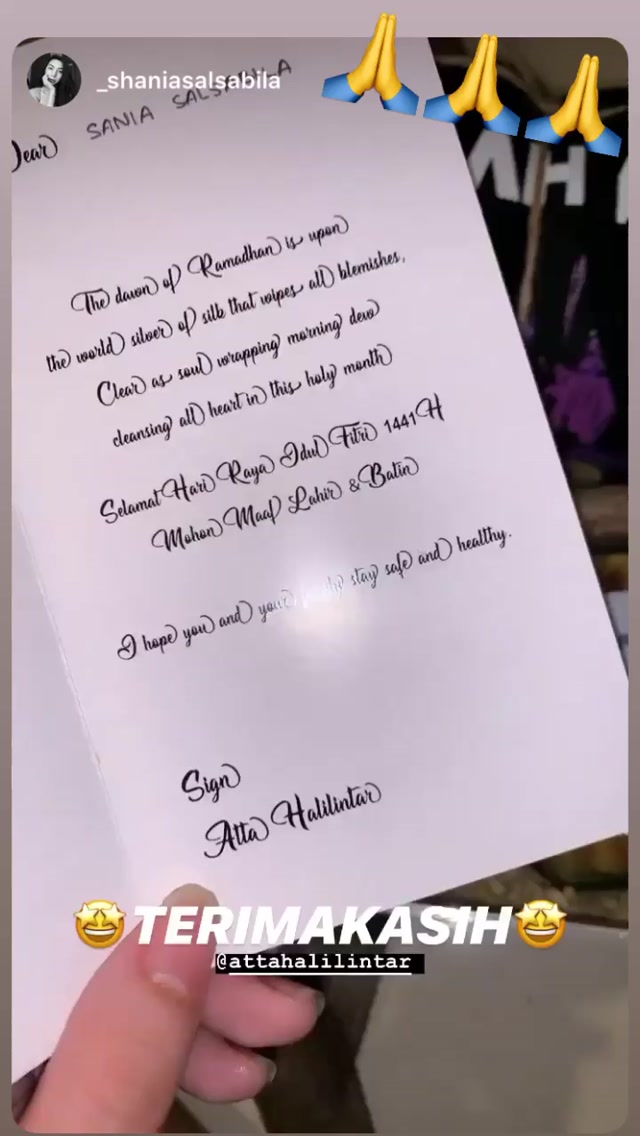 _shaniasalsabila
Dear SANIA SALSABILA
The dawn of Ramadhan is upon
the world silver of silk that wipes all blemishes,
Clear as soul wrapping morning dew
cleansing all heart in this holy month
Selamat Hari Raya Idul Fitri 1441 H
Mohon Maaf Lahir & Batin
I hope you and your family stay safe and healthy.
Sign
Atta Halilintar
TERIMAKASIH
@attahalilintar